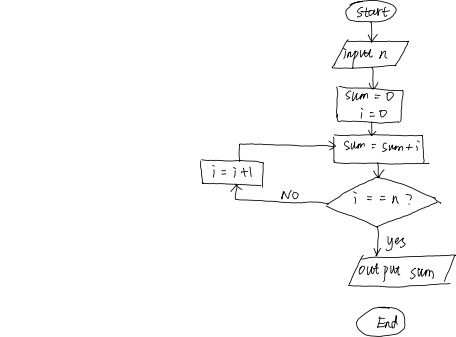 start
input n
sum = 0
i = 0
sum = sum + i
i = i + 1
NO
i = = n ?
yes
output sum
End